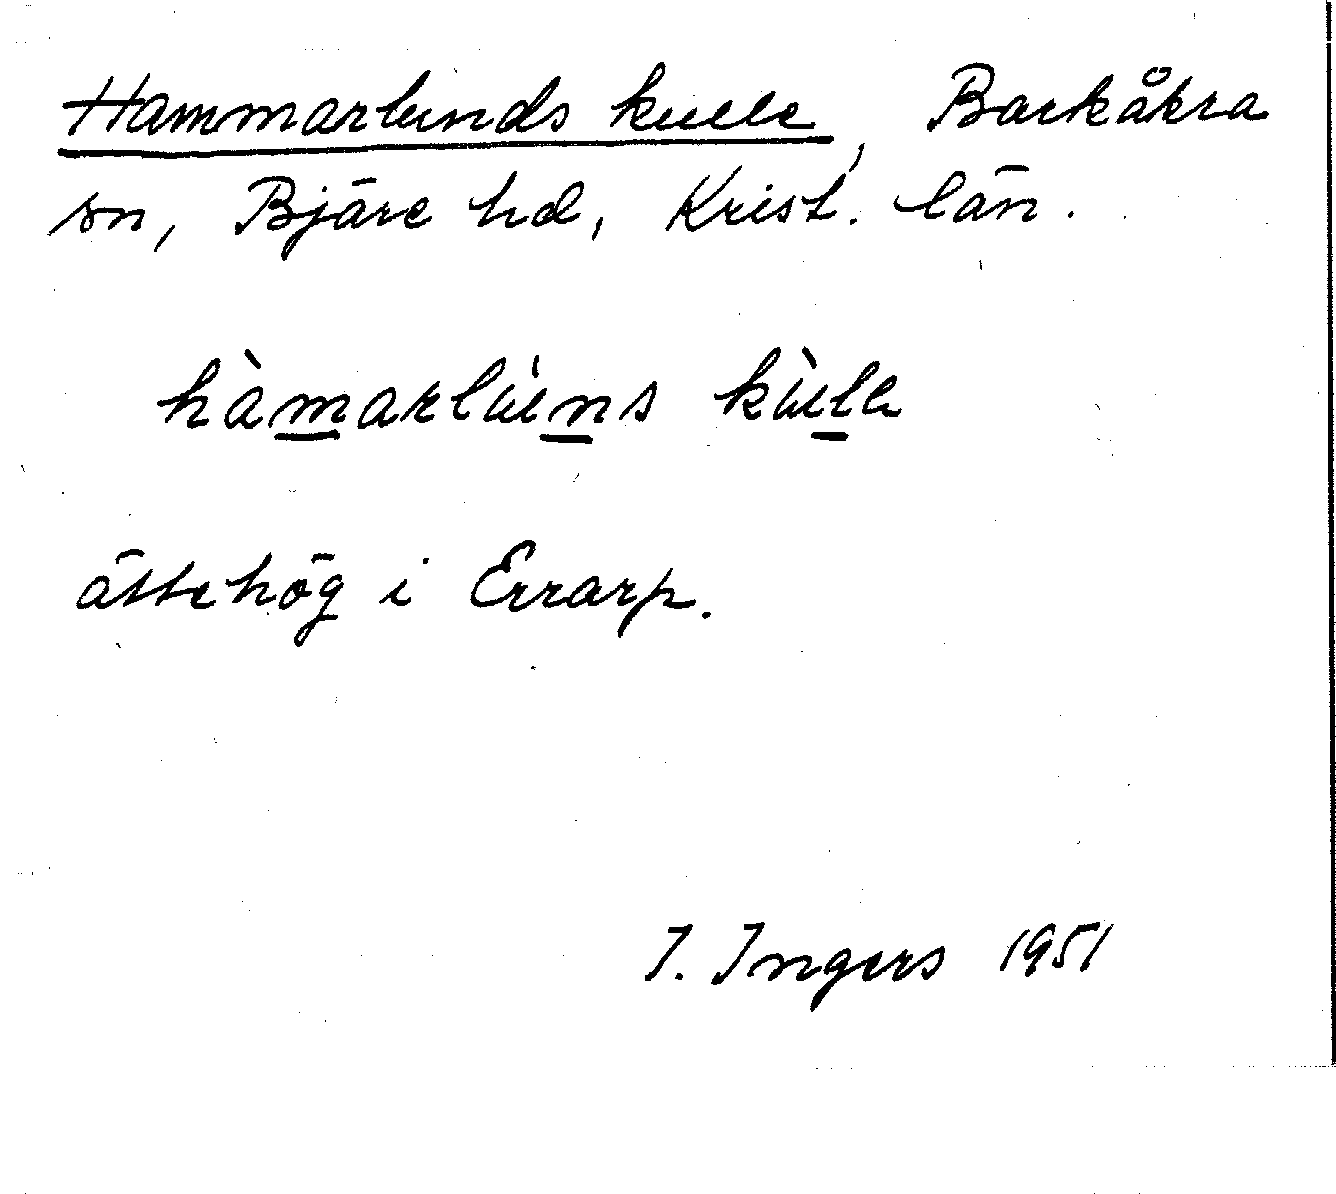 Hammarlunds kulle, Barkåkra
sn, Bjäre hd, Krist. län.
hàmarlúns kùle
ättehög i Errarp.
I. Ingers 1951